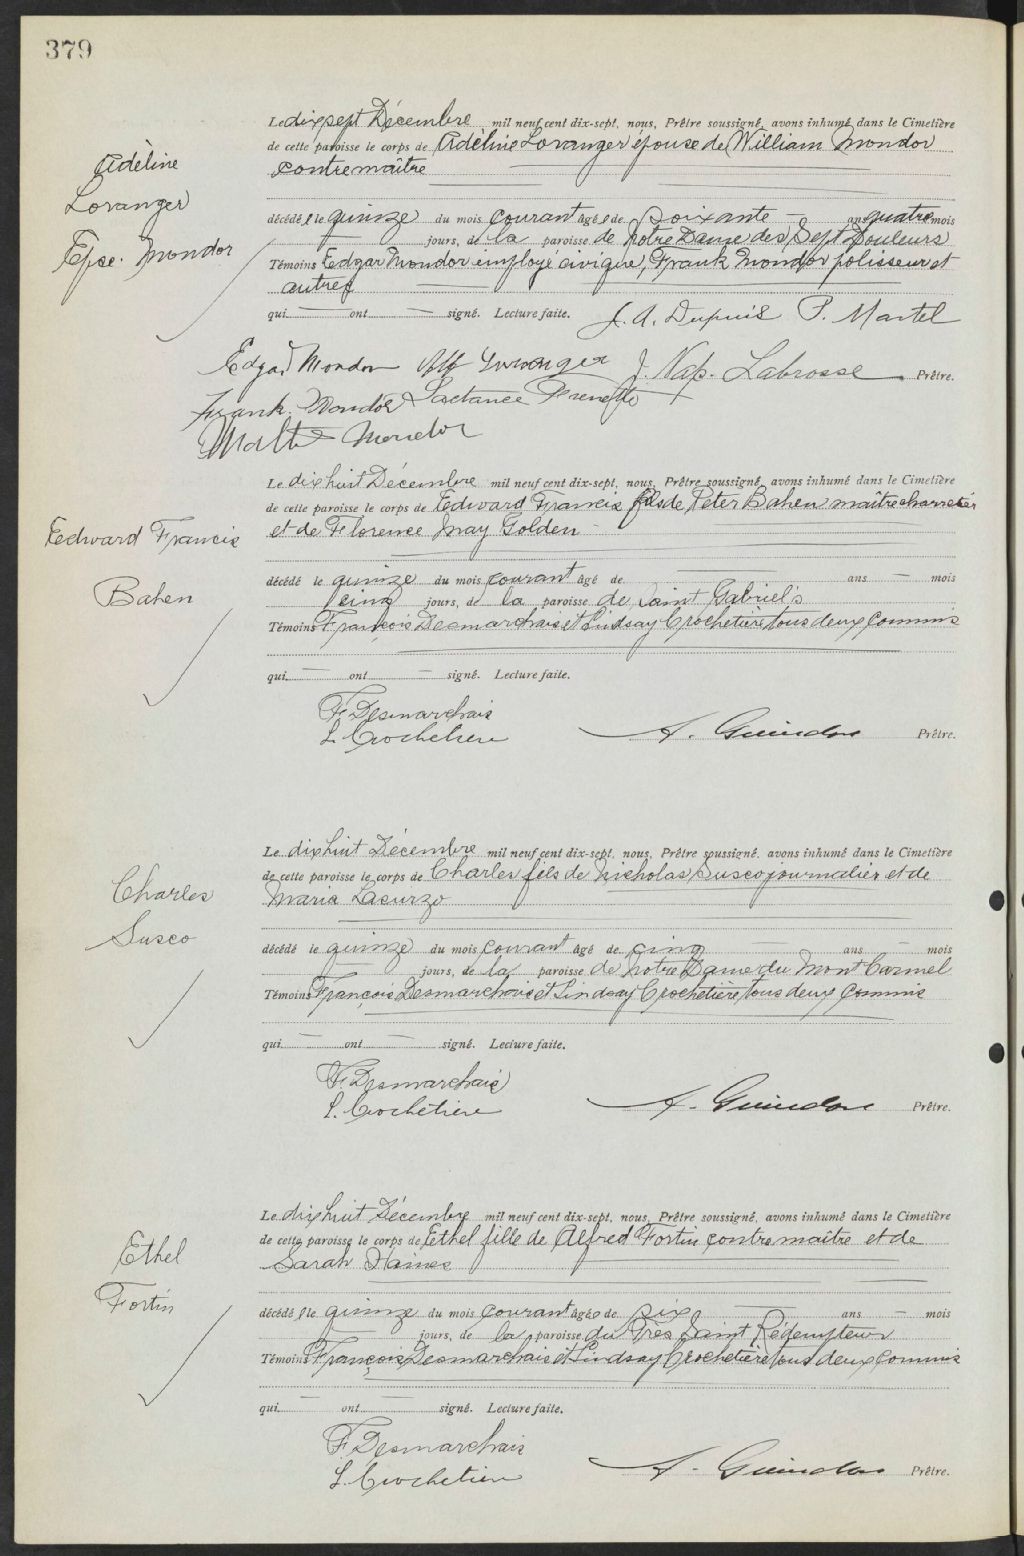 379
Adèline
Loranger
Epse. Mondor
Le dix sept Décembre mil neuf cent dix-sept, nous, Prêtre soussigné, avons inhumé dans le Cimetière
de cette paroisse le corps de Adèline Loranger épouse de William Mondor
contremaître
décédée le quinze du mois courant âgée de soixante ans quatre mois
jours, de la paroisse de Notre Dame des Sept Douleurs
Témoins Edgar Mondor employé civique, Frank Mondor polisseur et
autres
qui ont signé. Lecture faite. J. A. Dupuis P. Martel
Edgar Mondor Loranger J. Nap. Labrosse Prêtre.
Frank Mondor Lactance Frenette
Mondor
Edward Francis
Bahen
Le dix huit Décembre mil neuf cent dix-sept, nous, Prêtre soussigné, avons inhumé dans le Cimetière
de cette paroisse le corps de Edward Francis fils de Peter Bahen maître charretier
et de Florence May Golden
décédé le quinze du mois courant âgé de ans mois
cinq jours, de la paroisse de Saint Gabriel's
Témoins François Desmarchais et Lindsay Crochetière tous deux commis
qui ont signé. Lecture faite.
F. Desmarchais
L. Crochetiere
A. Guindon Prêtre.
Charles
Susco
Le dix huit Décembre mil neuf cent dix-sept, nous, Prêtre soussigné, avons inhumé dans le Cimetière
de cette paroisse le corps de Charles fils de Nicholas Susco journalier et de
Maria Lacurzo
décédé le quinze du mois courant âgé de cinq ans mois
jours, de la paroisse de Notre Dame du Mont Carmel
Témoins François Desmarchais et Lindsay Crochetière tous deux commis
qui ont signé. Lecture faite.
F. Desmarchais
L. Crochetière
A. Guindon Prêtre.
Ethel
Fortin
Le dix huit Décembre mil neuf cent dix-sept, nous, Prêtre soussigné, avons inhumé dans le Cimetière
de cette paroisse le corps de Ethel fille de Alfred Fortin contremaître et de
Sarah Haines
décédée le quinze du mois courant âgée de six ans mois
jours, de la paroisse du Très Saint Rédempteur
Témoins François Desmarchais et Lindsay Crochetière tous deux commis
qui ont signé. Lecture faite.
F. Desmarchais
L. Crochetiere
A. Guindon Prêtre.